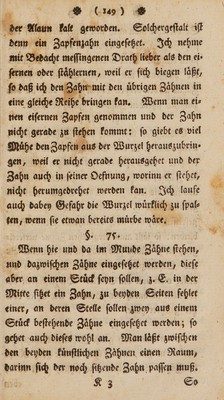 ( 149 )
der Alaun kalt geworden. Solchergestalt ist
denn ein Zapfenzahn eingesetzt. Ich nehme
mit Bedacht messingenen Drath lieber als den ei-
sernen oder stählernen, weil er sich biegen läßt,
so daß ich den Zahn mit den übrigen Zähnen in
eine gleiche Reihe bringen kan. Wenn man ei-
nen eisernen Zapfen genommen und der Zahn
nicht gerade zu stehen kommt: so giebt es viel
Mühe den Zapfen aus der Wurzel herauszubrin-
gen, weil er nicht gerade herausgehet und der
Zahn auch in seiner Oefnung, worinn er stehet,
nicht herumgedrehet werden kan. Ich laufe
auch dabey Gefahr die Wurzel würklich zu spal-
ten, wenn sie etwan bereits mürbe wäre.
§. 75.
Wenn hie und da im Munde Zähne stehen,
und dazwischen Zähne eingesetzt werden, diese
aber an einem Stück seyn sollen, z. E. in der
Mitte sitzt ein Zahn, zu beyden Seiten fehlet
einer, an deren Stelle sollen zwey aus einem
Stück bestehende Zähne eingesetzt werden; so
gehet auch dieses wohl an. Man läßt zwischen
den beyden künstlichen Zähnen einen Raum,
darinn sich der noch sitzende Zahn passen muß.
K 3 So